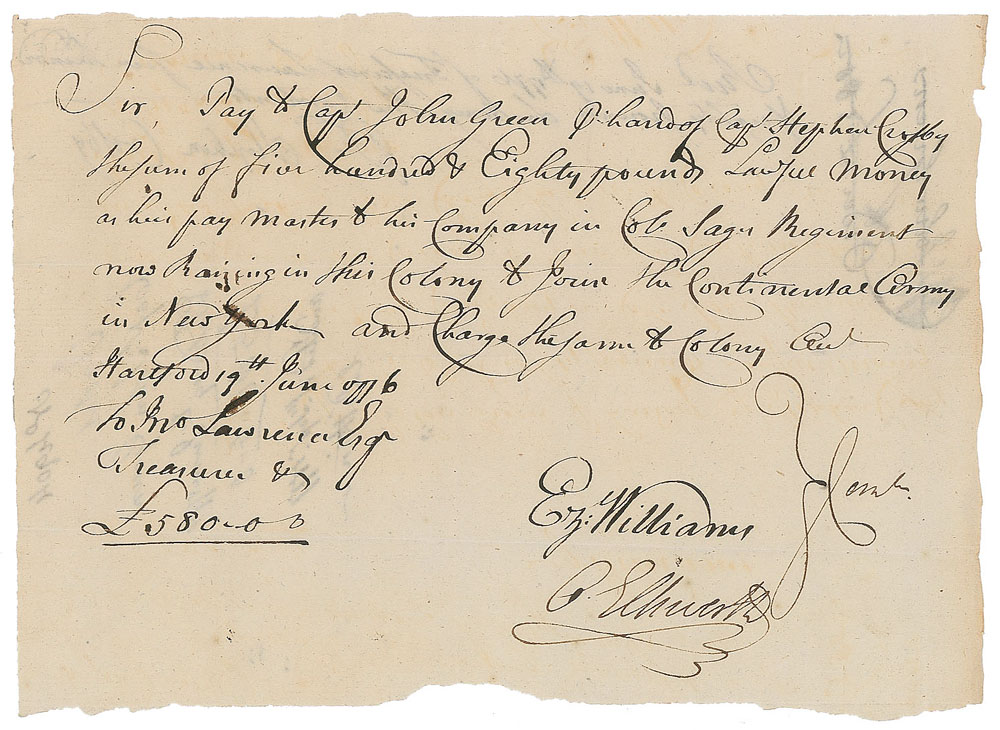 Sir, Pay to Capt. John Green Pr. hand of Capt. Stephen Crosby
the sum of five hundred & Eighty pounds Lawful Money
as his pay master to his Company in Colo. Sages Regiment
now Raizing in this Colony to Joine the Continental Army
in New York and Charge the same to Colony Acct
Hartford 19th. June 1776
To Jno Lawrence Esqr
Treasurer &c
£580-0-0
Ezl: Williams
O. Ellsworth
Comtee.